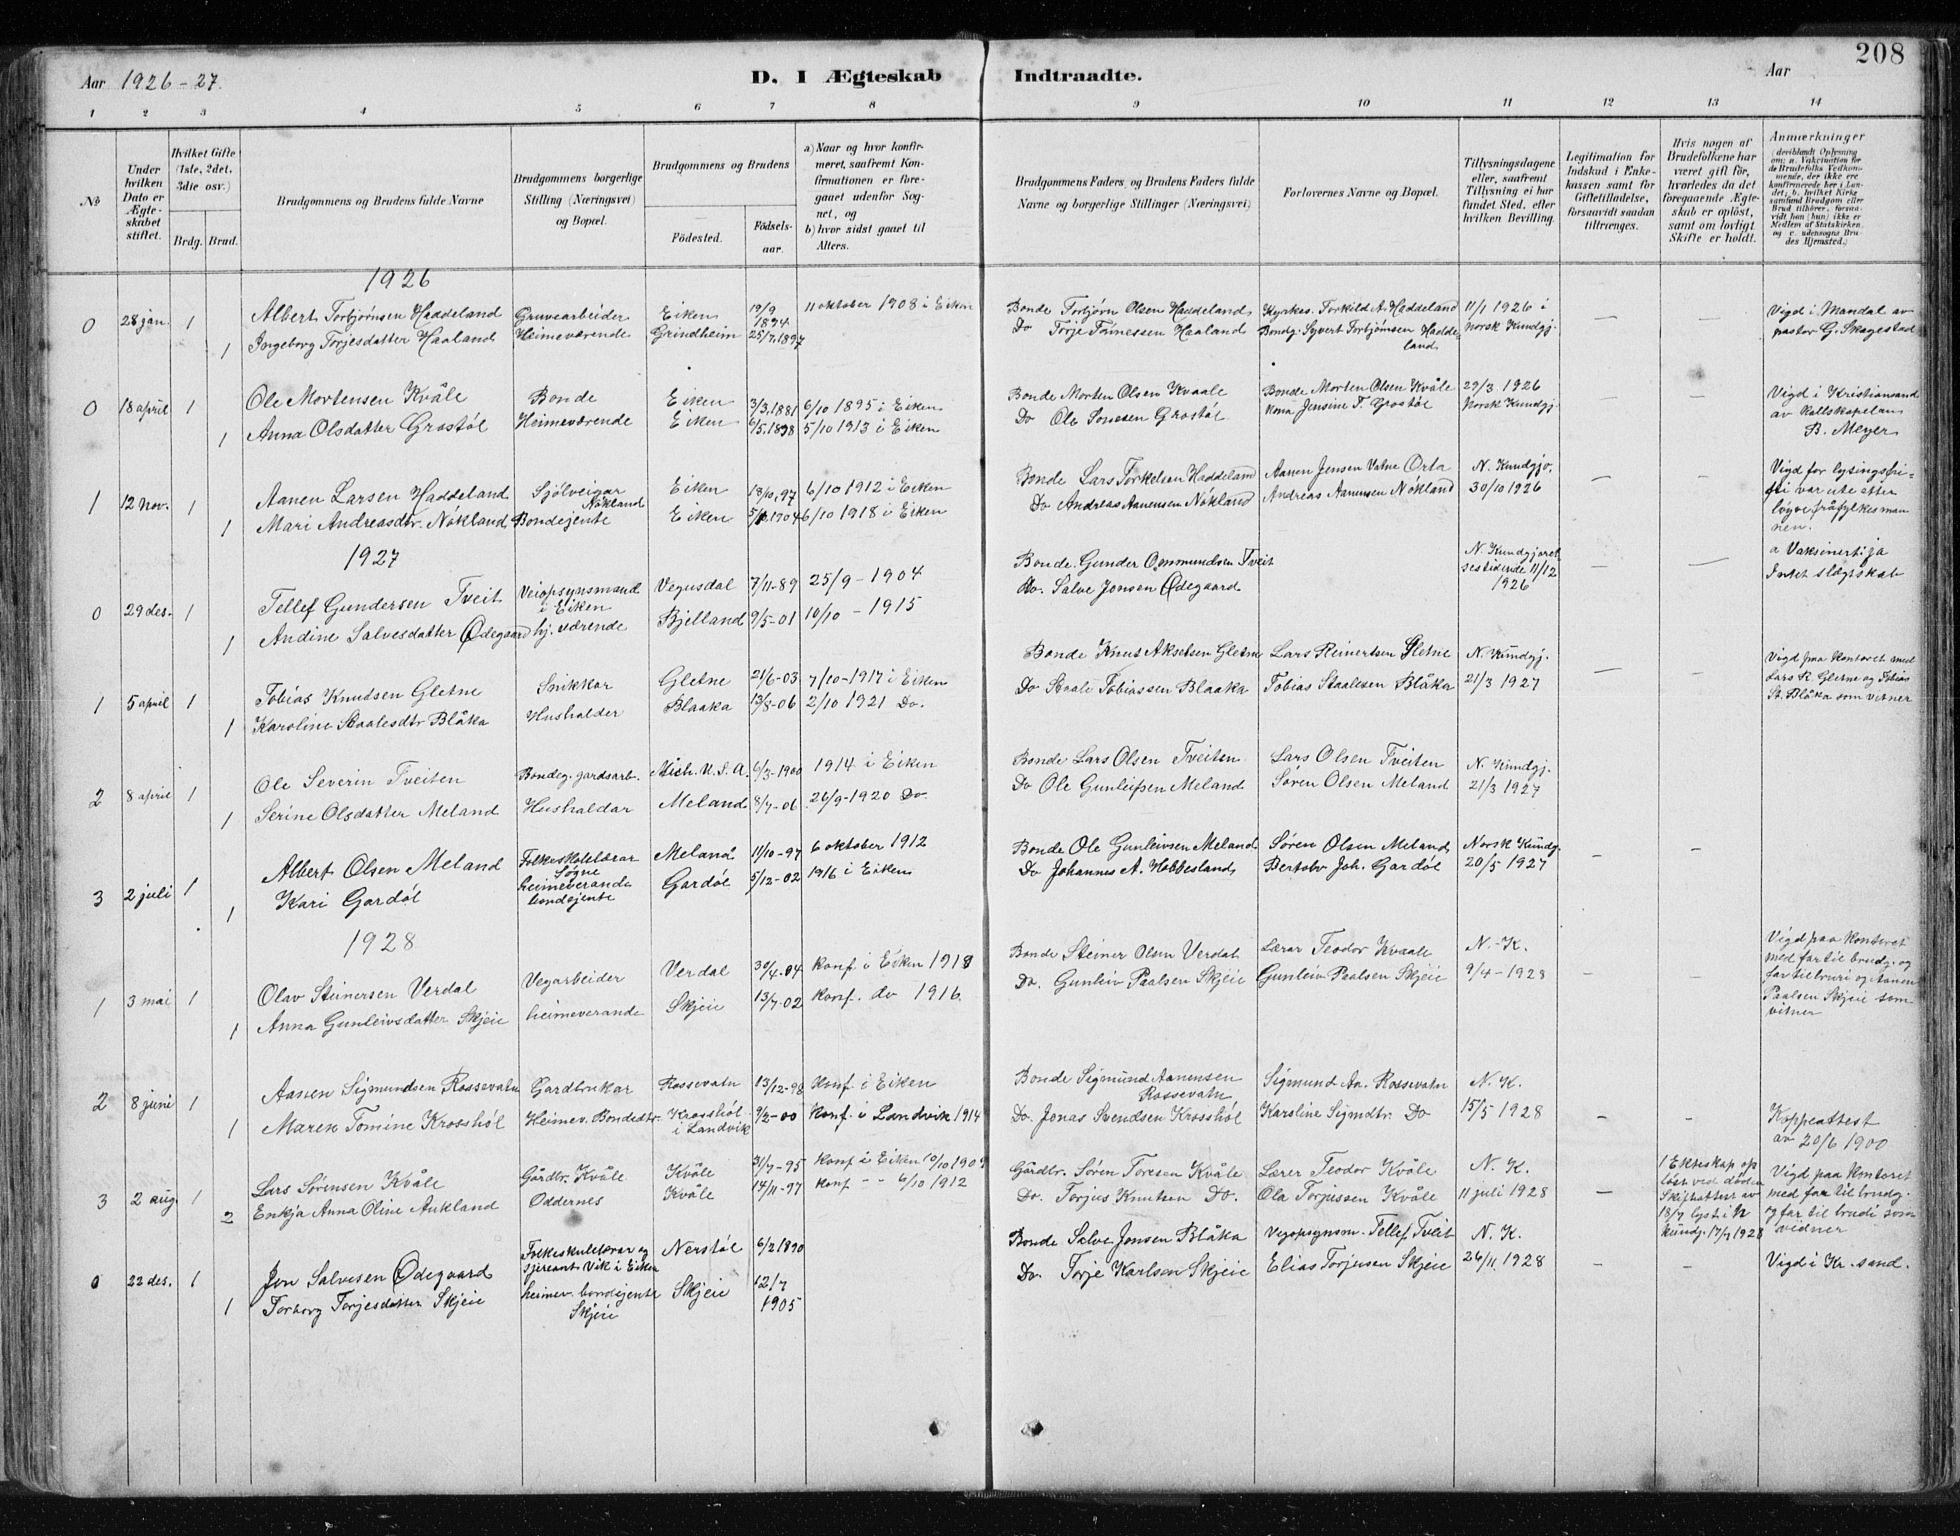 208
Aar 1926-27. D. I Ægteskab Indtraadte. Aar
1 2 3 4 5 6 7 8 9 10 11 12 13 14
No
Under hvilken Dato er Ægteskabet stiftet.
Hvilket Gifte (1ste, 2det, 3die osv.)
Brdg. Brud.
Brudgommens og Brudens fulde Navne
Brudgommens borgerlige Stilling (Næringsvei) og Bopæl.
Brudgommens og Brudens
Fødested. Fødselsaar.
a) Naar og hvor konfirmeret, saafremt Konfirmationen er foregaaet udenfor Sognet, og
b) hvor sidst gaaet til Alters.
Brudgommens Faders og Brudens Faders fulde Navne og borgerlige Stillinger (Næringsvei)
Forlovernes Navne og Bopæl.
Tillysningsdagene eller, saafremt Tillysning ei har fundet Sted, efter hvilken Bevilling.
Legitimation for Indskud i Enkekassen samt for Giftetilladelse, forsaavidt saadan tiltrænges.
Hvis nogen af Brudefolkene har været gift før, hvorledes da det foregaaende Ægteskab er opløst, samt om lovligt Skifte er holdt.
Anmærkninger (deriblandt Oplysning om: a. Vakcination for de Brudefolks Vedkommende, der ikke ere konfirmerede her i Landet; b. hvilket Kirkesamfund Brudgom eller Brud tilhører, forsaavidt han (hun) ikke er Medlem af Statskirken, og c. udensogns Brudes Hjemsted.)
1926
0 28 jan. 1 Albert Torbjørnsen Haddeland Gruvearbeider Eiken 19/9 1894 11 oktober 1908 i Eiken Bonde Torbjørn Olsen Haddeland Kyrkes. Torkild A. Haddeland 11/1 1926 i — — Vigd i Mandal av
1 Ingeborg Torjesdatter Haaland Heimeværende Grindheim 25/7.1897 Do Torje Tønnessen Haaland Bondg. Syvert Torbjørnsen Haddeland Norsk Kundgj. pastor G. Skagestad
0 18 april 1 Ole Mortensen Kvåle Bonde Eiken 3/3.1881 6/10 1895 i Eiken Bonde Morten Olsen Kvaale Bonde Morten Olsen Kvåle 29/3.1926 — — Vigd i Kristiansand
1 Anna Olsdatter Grostøl Heimeværende Eiken 6/5.1898 5/10 1913 i Eiken Do Ole Grostøl Kona Jensine T. Grostøl Norsk Kundgj. av B. Meyer
1 12 nov. 1 Aanen Larsen Haddeland Sjølveigar Nøkland Eiken 18/10.97 6/10 1912 i Eiken Bonde Lars Torkelsen Haddeland Aanen Jensen Vatne N. Kundgjø. — — Vigd før lysingsfri-
1 Mari Andreasdtr. Nøkland Bondejente Eiken 1904 6/10 1918 i Eiken Do Andreas Aanensen Nøkland Andreas Aanensen Nøkland 30/10 1926 sti var ute etter
løyve frå fylkesmannen.
1927
0 29 des. 1 Tellef Gundersen Tveit Veiopsynsmand i Eiken Vegusdal 7/11-89 25/9-1904 Bonde. Gunder Ommundsen Tveit N. Kundgjoret — — a Vaksinert: ja
1 Andine Salvesdatter Ødegaard hj. værende Bjelland 9/5-01 10/10-1915 do. Salve Jonsen Ødegaard 11/12 1926 Intet slægtskab
1 5 april 1 Tobias Knudsen Gletne Snikkar Gletne 21/6-03 7/10-1917 i Eiken Bonde Knut Akselsen Gletne Lars Reinertsen Gletne N. Kundgj. — Vigd paa kontoret med
1 Karoline Staalesdtr Blåka Hushalder Blaaka 13/8-06 2/10 1921 Do. Do Staale Tobiassen Blaaka Tobias Staalesen Blåka 21/3 1927 Lars R. Gletne og Tobias
St. Blåka som vitner
2 8 april 1 Ole Severin Tveiten Bondeg. gardsarb. Mich. U.S.A. 6/3-1900 1914 i Eiken Bonde Lars Olsen Tveiten Lars Olsen Tveiten N. Kundgj.
1 Serine Olsdatter Meland Hushaldar Meland 8/7-06 26/9-1920 Do. Do Ole Gunleifsen Meland Søren Olsen Meland 21/3 1927
3 2 juli 1 Albert Olsen Meland Folkeskolelærar Søgne Meland 11/10-97 6 oktober 1912 Bonde Ole Gunleivsen Meland Søren Olsen Meland Norsk Kundg. — —
1 Kari Gardøl heimeverande bondejente Gardøl 5/12-02 1916 i Eiken Do Johannes A. Hobbesland Bertolv Joh. Gardøl 20/5 1927
1928
1 3 mai 1 Olav Steinersen Verdal Vegarbeider Verdal 30/4-04 konf. i Eiken 1918 Bonde Steiner Olsen Verdal Lærar Teodor Kvaale N.-K. — — Vigd paa kontoret
1 Anna Gunleivsdatter Skjeie heimeverande Skjeie 13/7-02 konf. do 1916. Do. Gunleiv Paalsen Skjeie Gunleiv Paalsen Skjeie 9/4-1928 med far til brudg. og
far til bruri og Aanen
Paalsen Skjeie som
vitner
2 8 juni 1 Aanen Sigmundsen Rossevatn Gardbrukar Rossevatn 13/12-98 Konf. i Eiken Bonde Sigmund Aanensen Rossevatn Sigmund Aa. Rossevatn N. K.
1 Maren Tomine Krosshøl Heimev. Bondedtr. Krosshøl i Landvik 9/2-00 Konf. i Landvik 1914 Do. Jonas Svendsen Krosshøl Karoline Sigmdtr. Do 15/5 1928 — — Koppeattest
av 20/6 1900
3 2 aug. 1 Lars Sørensen Kvåle Gårdbr. Kvåle Kvåle 31/7-95 konf i Eiken 10/10 1909 Gårdbr. Søren Toresen Kvåle Lærer Teodor Kvåle N. K. — 1 Ekteskap opløst ved døden Vigd paa kontoret
2 Enkja Anna Oline Aukland Oddernes Kvåle 14/11-97 konf - - 6/10 1912 Do. Torjus Knutsen Do. Ola Torjussen Kvåle 11 juli 1928 Skifteattest av 18/7 lyst i N kundg. 17/7 1928 med far til brudg.
og far til brudi som
vidner
0 22 des. 1 Jon Salvesen Ødegaard Folkeskulelærar og sjersant. Vik i Eiken Nerstøl 6/2 1890 Bonde Salve Jonsen Blåka Vegopsynsm. Tellef Tveit N. K. — — Vigd i Kr. sand.
1 Torborg Torjesdatter Skjeie heimev. bondejente Skjeie Skjeie 12/7 1905 Do. Torje Karlsen Skjeie Elias Torjusen Skjeie 26/11.1928